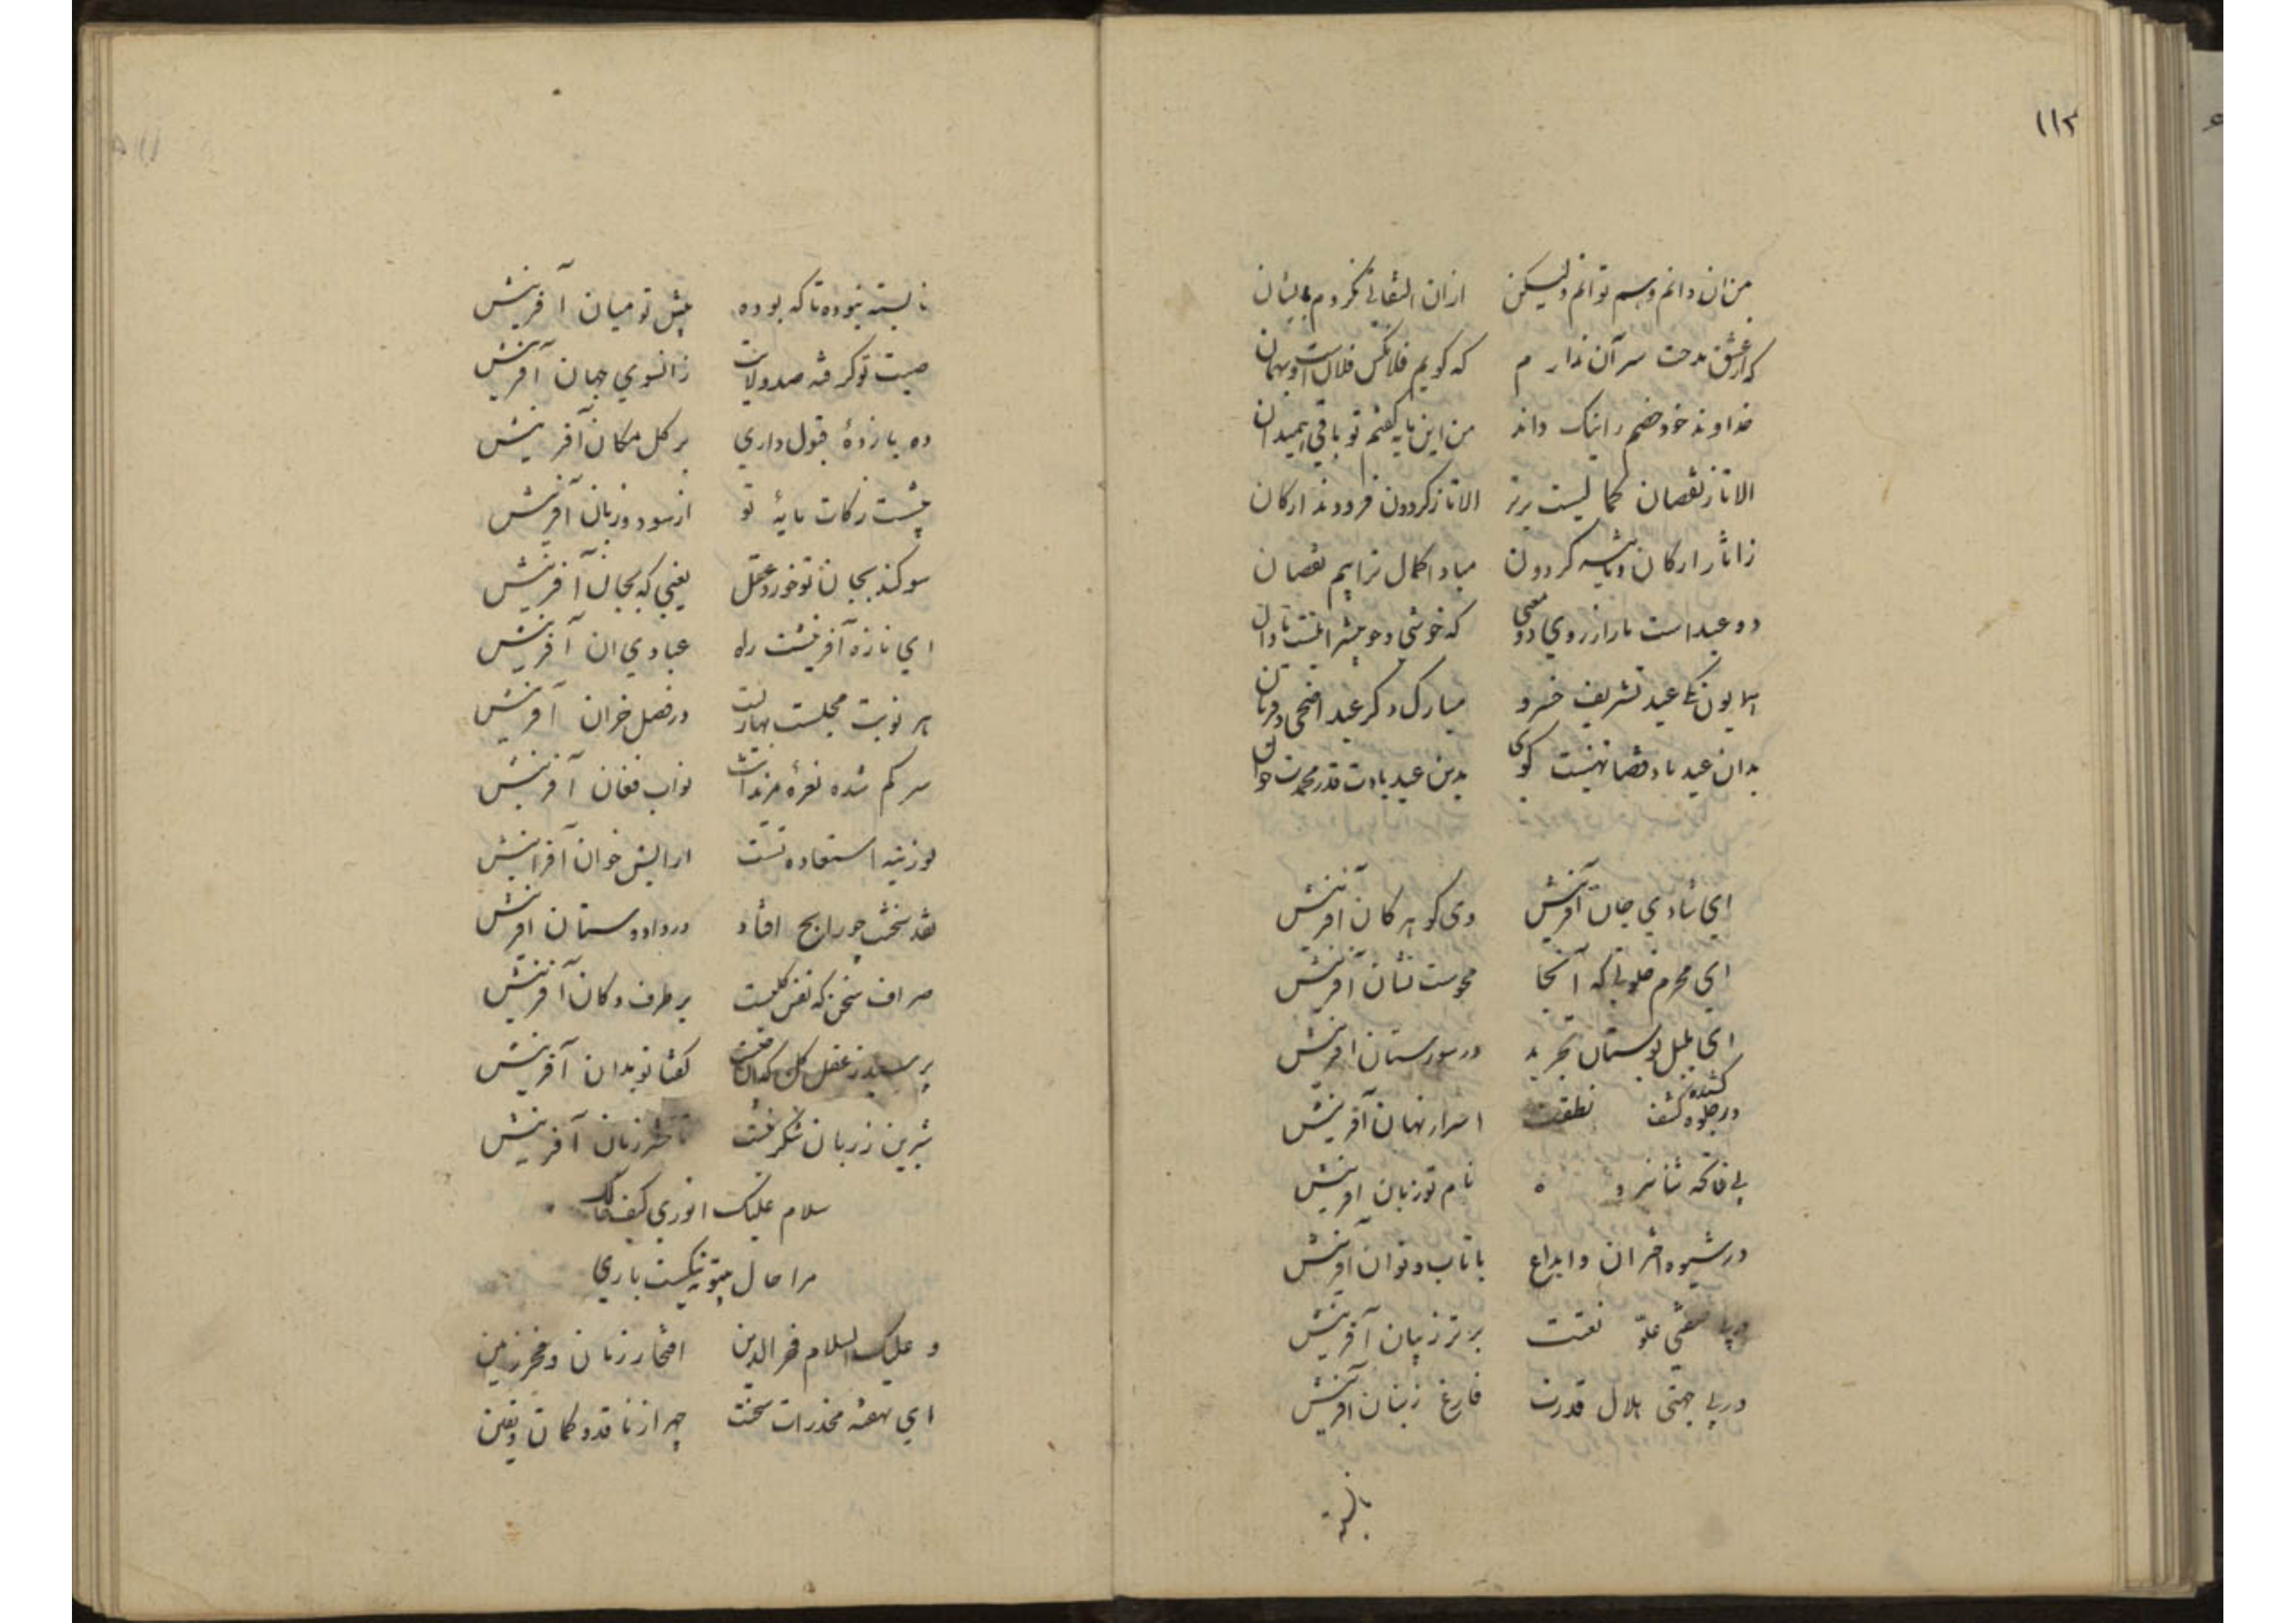 ۱۱۲
من ان دانم وهم توانم ولیکن از ان التفاتی نکردم بایشان
که از عشق مدحت سر آن ندارم که گویم فلانکس فلانست و بهمان
خداوند خود خصم را نیک داند من این مایه گفتم تو باقی همیدان
الا تا ز نقصان کمالیست برتر الا تا ز گردون فرودند ارکان
ز اثار ارکان و تاثیر گردون مبادا کمال ترا بیم نقصان
دو عید است ما را ز روی دو معنی که خوشی و خوبیش را نیست تاوان
همایون یکی عید تشریف خسرو مبارک دگر عید اضحی و قربان
بدان عید بادت قضا تهنیت گوی بدین عید بادت قدر محمدت خوان
ای شادی جان آفرینش وی گوهر کان آفرینش
ای محرم خلوتی که آنجا محوست نشان آفرینش
ای بلبل بوستان تجرید در سورستان افرینش
کشنده
در جلوه کشف نطقت اسرار نهان آفرینش
بی فاتحه ثنا نبرده نام تو زبان افرینش
در شیوه اختران و ابداع با تاب و توان آفرینش
علو نعتت برتر ز بیان آفرینش
در بی جهتی جلال قدرت فارغ ز بنان آفرینش
نابسته
نابسته نبوده تا که بوده پیش تو میان آفرینش
صیت تو گرفته صد ولایت زانسوی جهان آفرینش
ده یازدهٔ قبول داری بر کل مکان آفرینش
بیشست زکات مایهٔ تو از سود و زیان آفرینش
سوگند بجان تو خورد عقل یعنی که بجان آفرینش
ای تازه آفرینشت راه عبادی ان آفرینش
هر نوبت مجلست بهاریست در فصل خزان آفرینش
سر گم شده نعرهٔ مریدانت نواب فغان آفرینش
لوزینه استعاده تست ارایش خوان آفرینش
نقد سخنت چو رایج افتاد در داد و ستان آفرینش
صراف سخن که نفس کلیست بر طرف دکان آفرینش
پرسید ز عقل کل که آن چیست گفتا توبدان آفرینش
شیرین ز زبان شکرینت تا حشر زبان آفرینش
سلام علیک انوری کیف حالک
مرا حال بیتو نیکست باری
و علیک السلام فخر الدین افتخار زمان و فخر زمین
ای نهفته مخدرات سخنت چهر از ناقد گمان و یقین